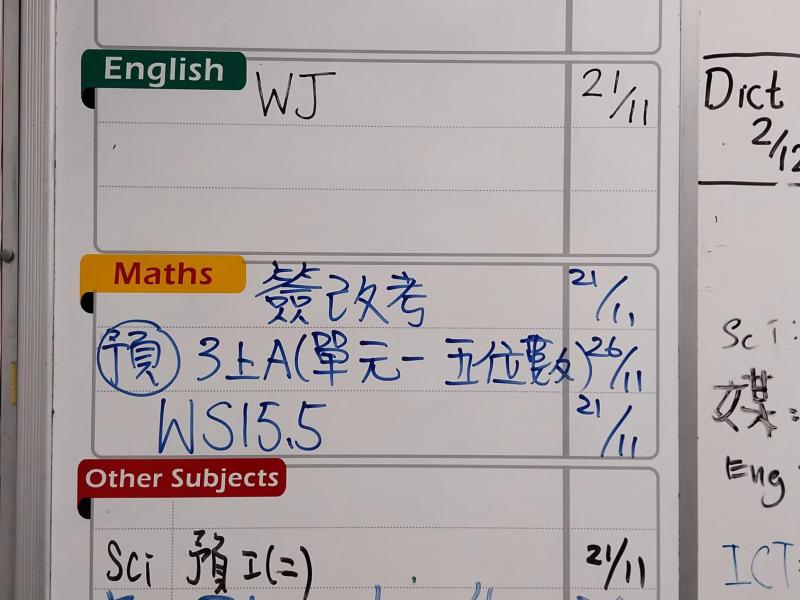 English WJ 21/11
Maths 簽改考 21/11
預 3上A(單元一 五位數) 26/11
WS15.5 21/11
Other Subjects
Sci 預 I(二) 21/11
Dict
2/12
Sci:
Eng
ICT